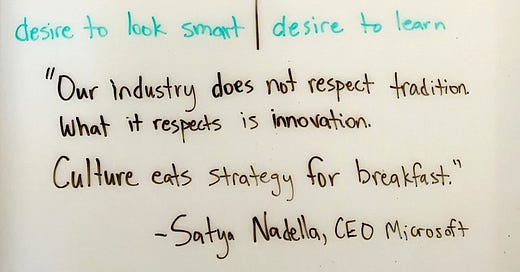 desire to look smart | desire to learn
"Our industry does not respect tradition.
What it respects is innovation.
Culture eats strategy for breakfast."
-Satya Nadella, CEO Microsoft